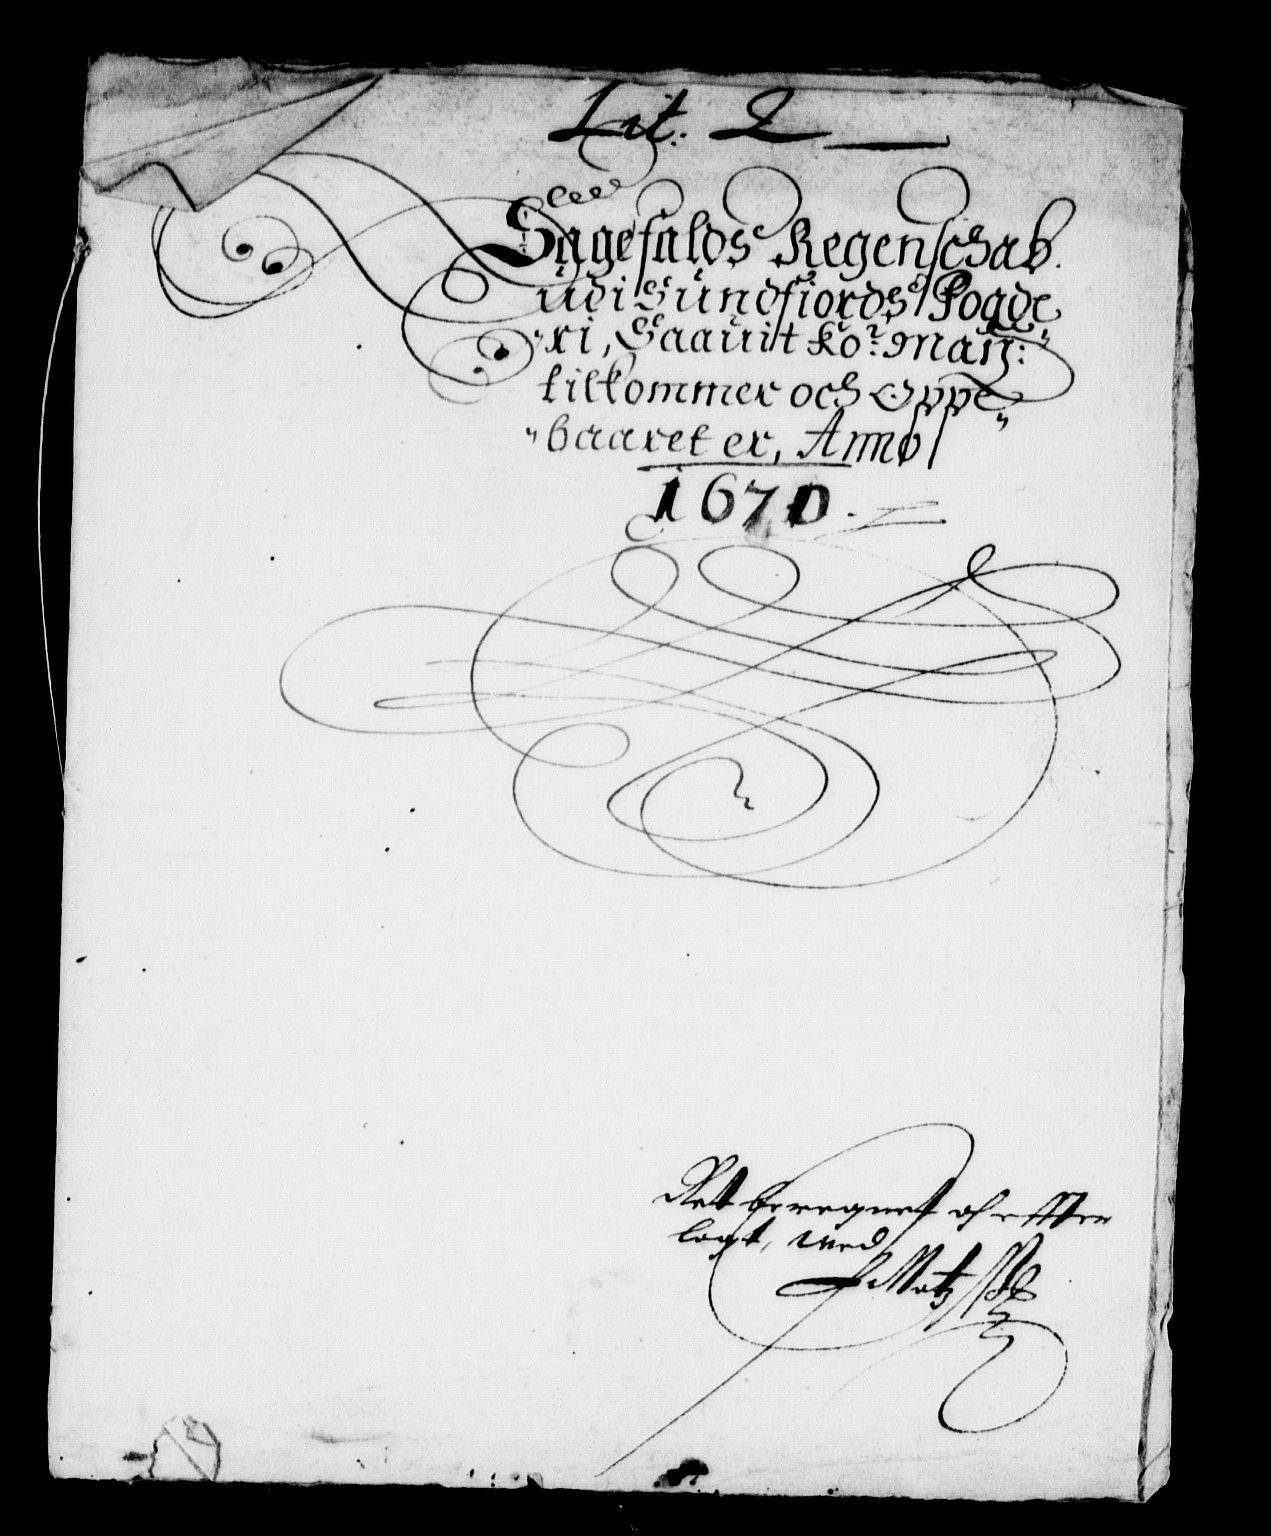 Lit: Q
Sagefalds Regenschab
udi Sundfiords Fogde
ri, Saauit Ko: May:
tilkommer och Oppe
baaret er, Anno
1670.
Ret beregnet och effter
lagt, med